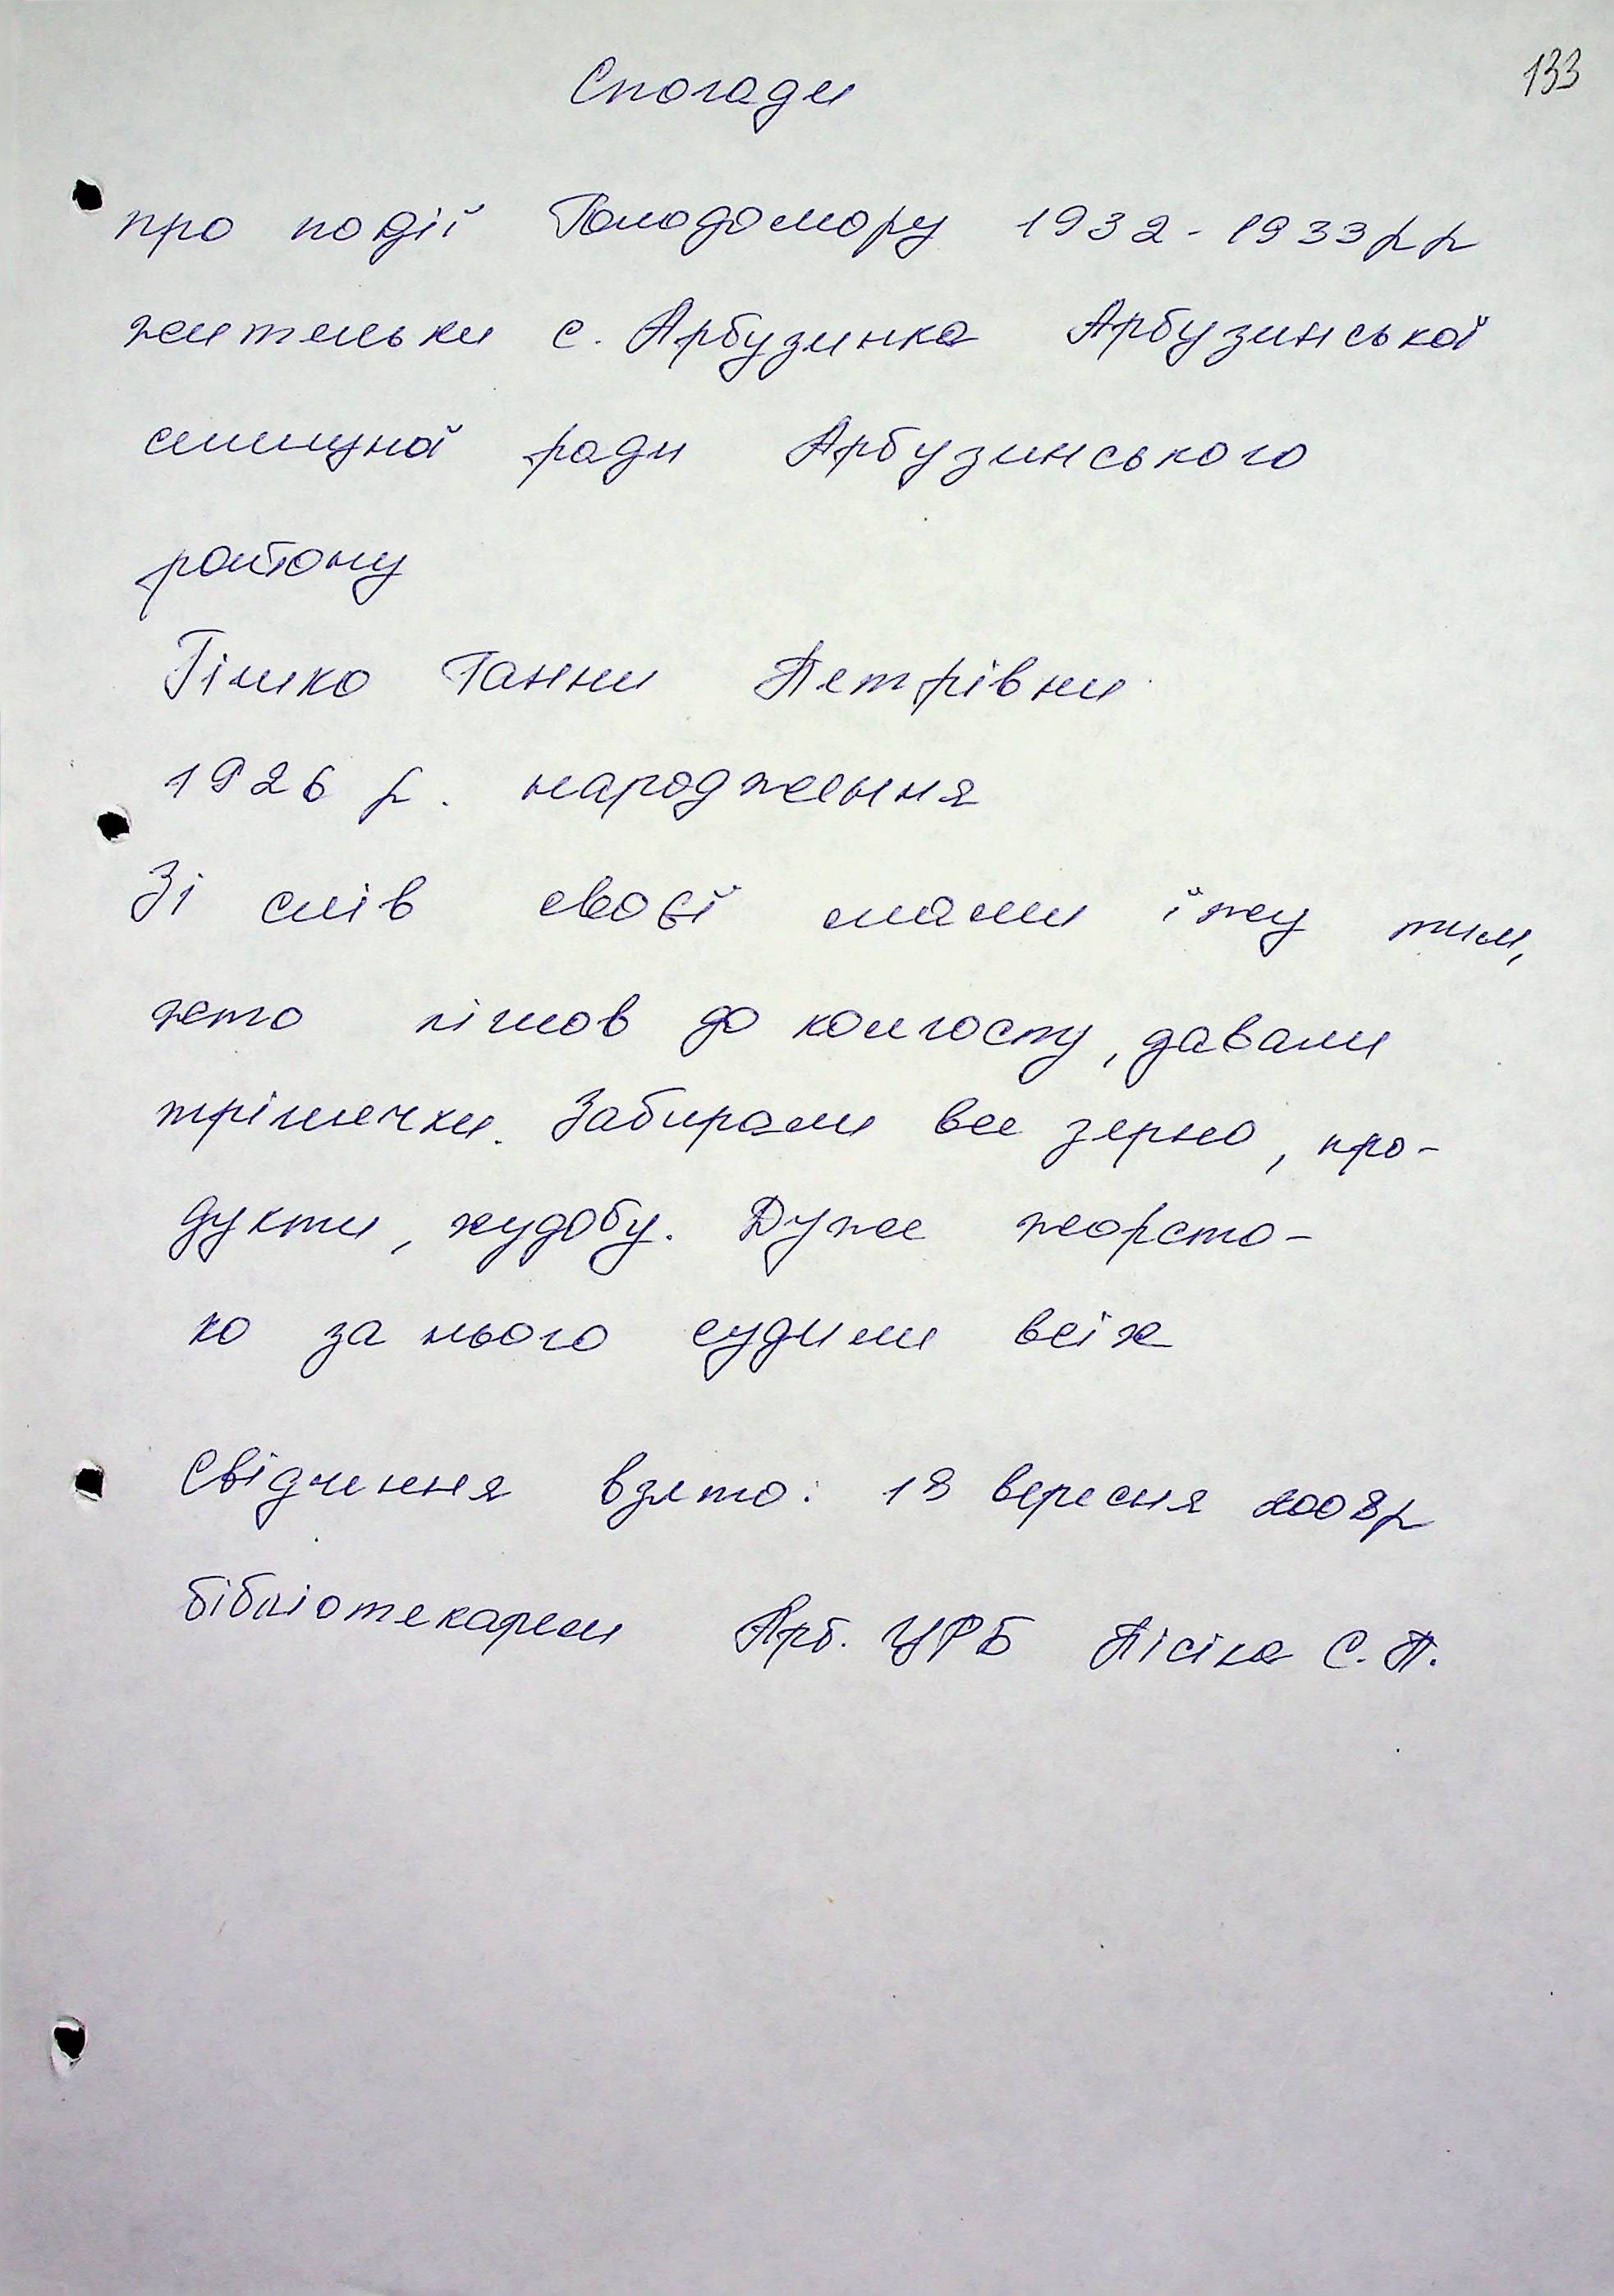 133
Спогади
про події Голодомору 1932-1933рр
жительки с. Арбузинка Арбузинської
селищної ради Арбузинського
району
Гілко Ганни Петрівни
1926 р. народження
Зі слів своєї мами їжу тим,
хто пішов до колгоспу, давали
трішечки. Забирали все зерно, про-
дукти, худобу. Дуже жорсто-
ко за нього судили всіх
Свідчення взято: 18 вересня 2008р
бібліотекарем Арб. ЦРБ Лісіна С.П.